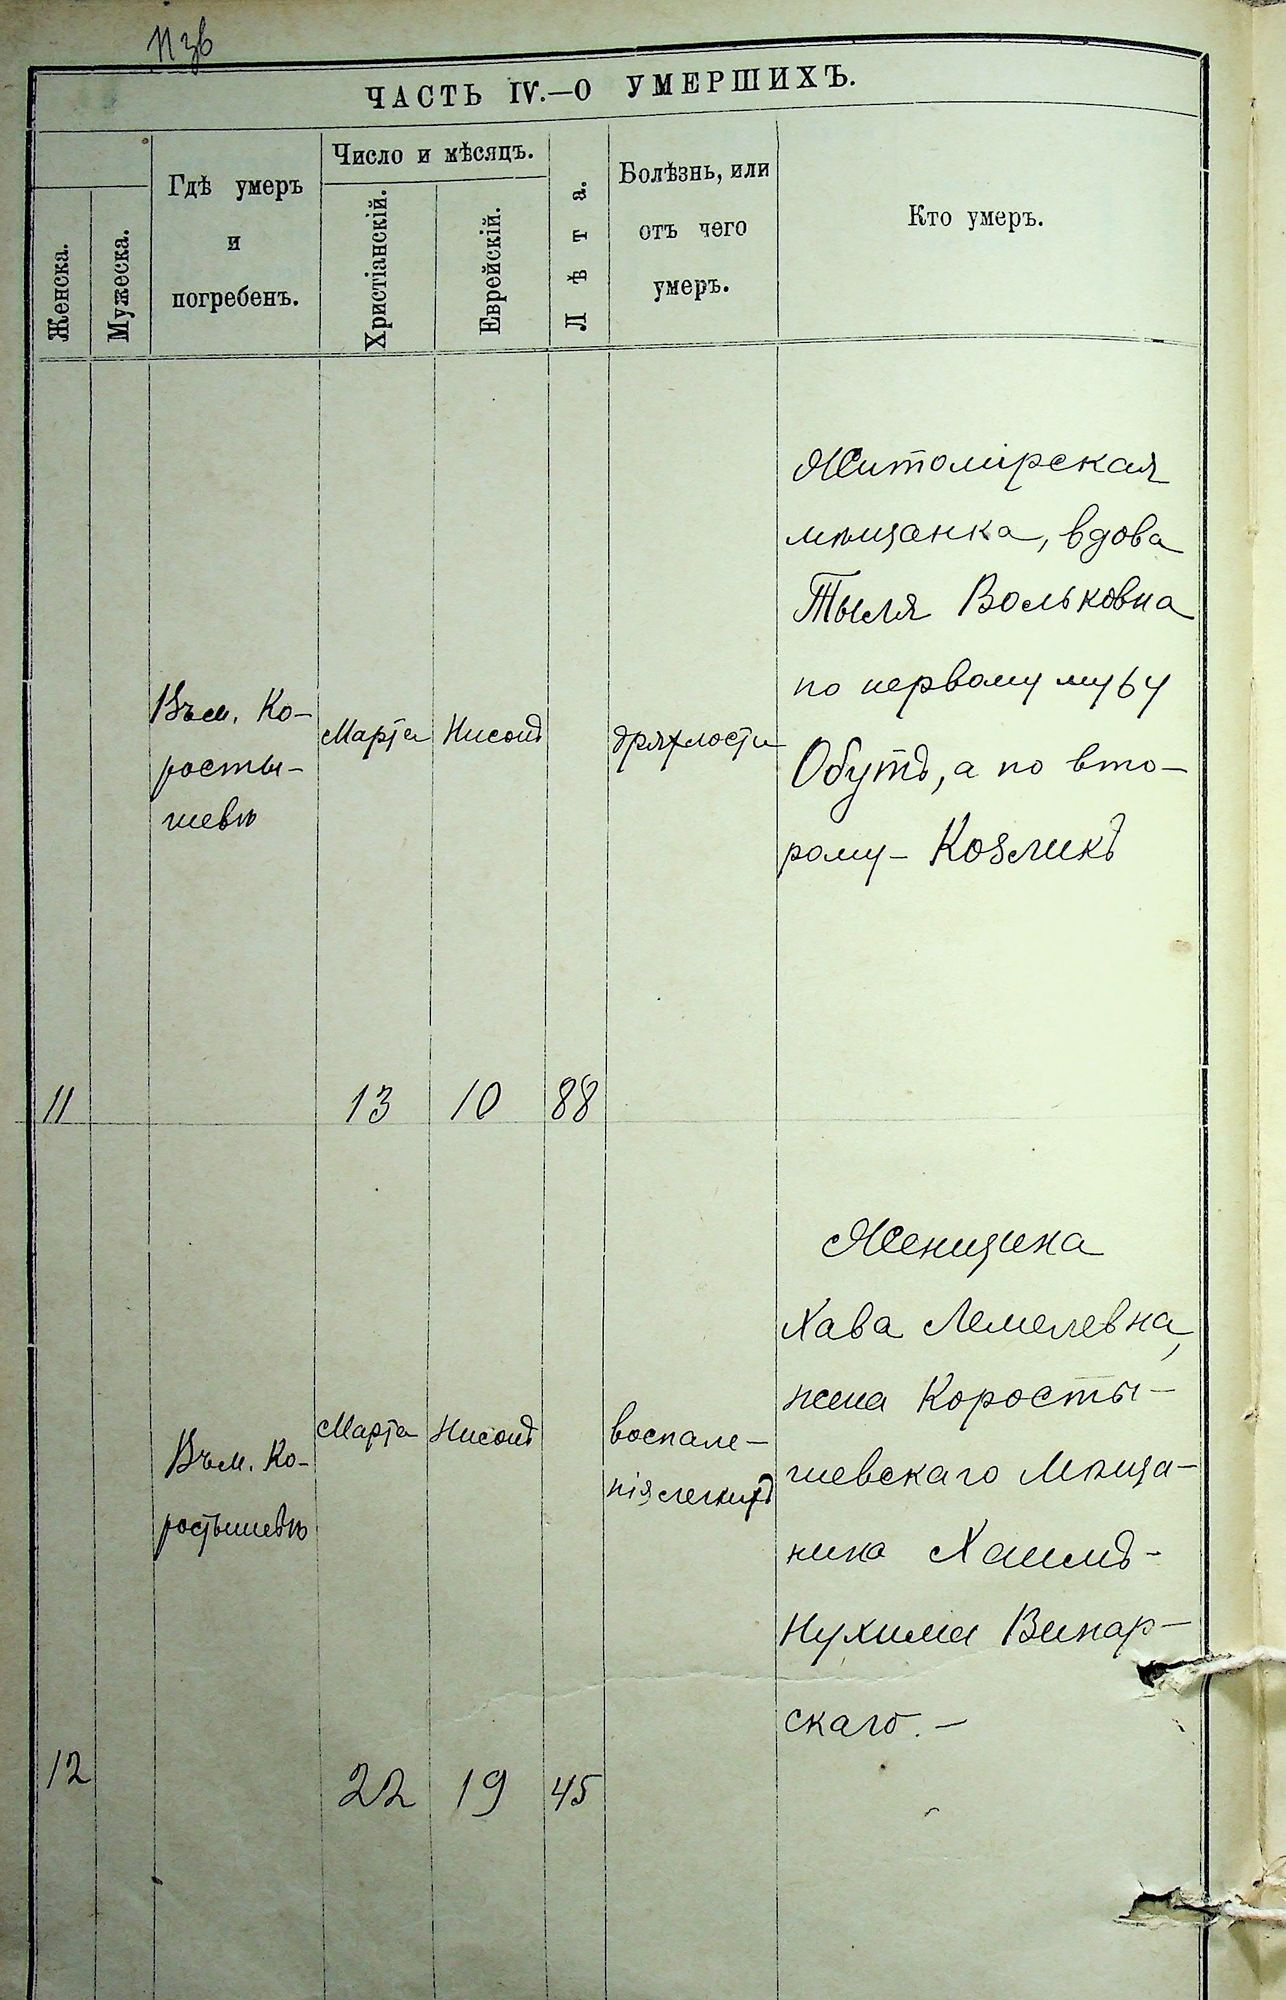 11 зв
ЧАСТЬ IV.—О УМЕРШИХЪ.
Женска.
Мужеска.
Гдѣ умеръ
и
погребенъ.
Число и мѣсяцъ.
Христіанскій.
Еврейскій.
Лѣта.
Болѣзнь, или
отъ чего
умеръ.
Кто умеръ.
Въ м. Ко-
росты-
шевѣ
Марта
Нисонъ
дряхлости
Житомірская
мѣщанка, вдова
Тыля Вольковна
по первому мужу
Обутъ, а по вто-
рому - Козликъ
11
13
10
88
Въ м. Ко-
ростышевѣ
Марта
Нисонъ
воспале-
нія легкихъ
Женщина
Хава Лемелевна,
жена Коросты-
шевскаго мѣща-
нина Хаимъ-
Нухима Винар-
скаго. -
12
22
19
45